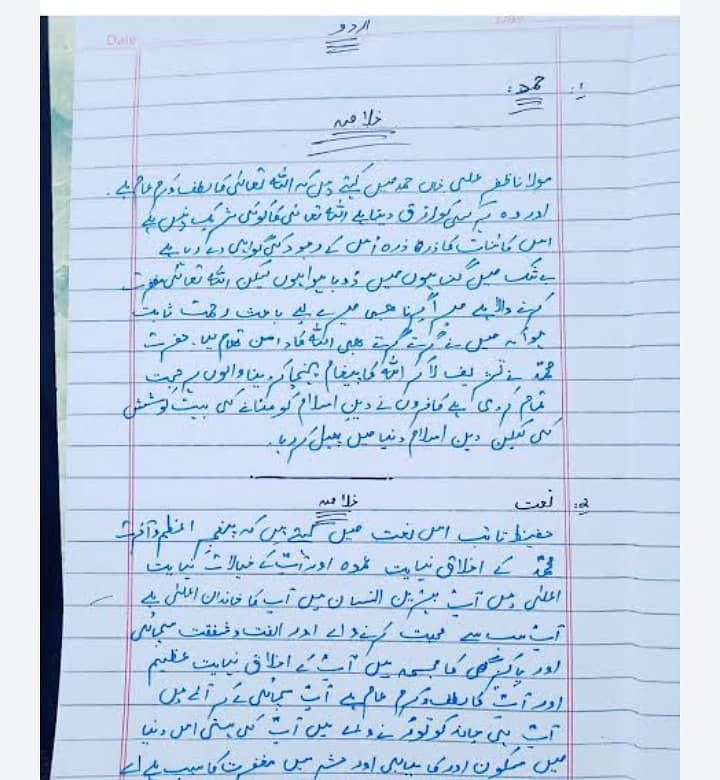 Date
اردو
1: حمد:
خلاصہ
مولانا ظفر علی خاں حمد میں کہتے ہیں کہ اللہ تعالیٰ کا لطف و کرم عام ہے۔
اور وہ ہر کسی کو رزق دیتا ہے اللہ تعالیٰ کا کوئی شریک نہیں ہے
اس کائنات کا ذرہ ذرہ اس کے وجود کی گواہی دے رہا ہے
بے شک میں گناہوں میں ڈوبا ہوا ہوں لیکن اللہ تعالیٰ مغفرت
کرنے والا ہے میرا گرنا بھی میرے لیے باعث رحمت ثابت
ہوا کہ میں نے گرتے گرتے بھی اللہ کا دامن تھام لیا۔ حضرت
محمدؐ نے تشریف لا کر اللہ کا پیغام پہنچا کر دینا والوں پر حجت
تمام کر دی ہے کافروں نے دین اسلام کو مٹانے کی بہت کوشش
کی لیکن دین اسلام دنیا میں پھیل کر رہا۔
2: نعت
خلاصہ
حفیظ تائب اس نعت میں کہتے ہیں کہ پیغمبر اعظم و آخرت
محمدؐ کے اخلاق نہایت عمدہ اور آپؐ کے خیالات نہایت
اعلیٰ ہیں آپؐ بہترین انسان ہیں آپ کا خاندان اعلیٰ ہے
آپؐ سب سے محبت کرنے والے اور الفت و شفقت سچائی
اور پاکیزگی کا مجسمہ ہیں آپؐ کے اخلاق نہایت عظیم
اور آپؐ کا لطف و کرم عام ہے آپؐ سچائی کے ہیں
آپؐ ہی چاند کو توڑنے والے ہیں آپؐ کی ہستی اس دنیا
میں سکون اور کامیابی اور حشر میں مغفرت کا سبب ہے اے